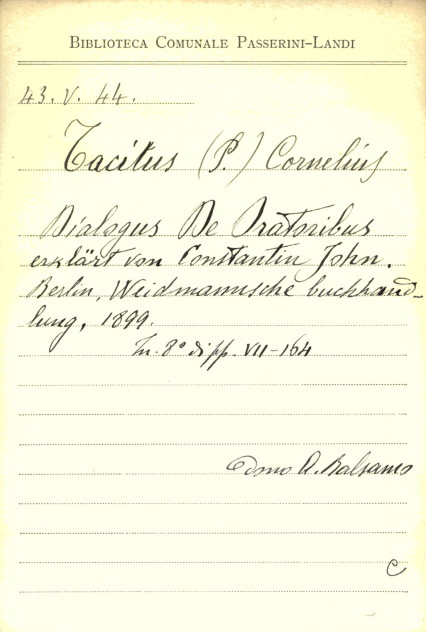 BIBLIOTECA COMUNALE PASSERINI-LANDI
43. V. 44.
Tacitus (P.) Cornelius
Dialogus De Oratoribus
erklärt von Constantin John.
Berlin, Weidmannsche buchhand-
lung, 1899.
In. 8° di pp. VII-164
Dono A. Balsamo
C